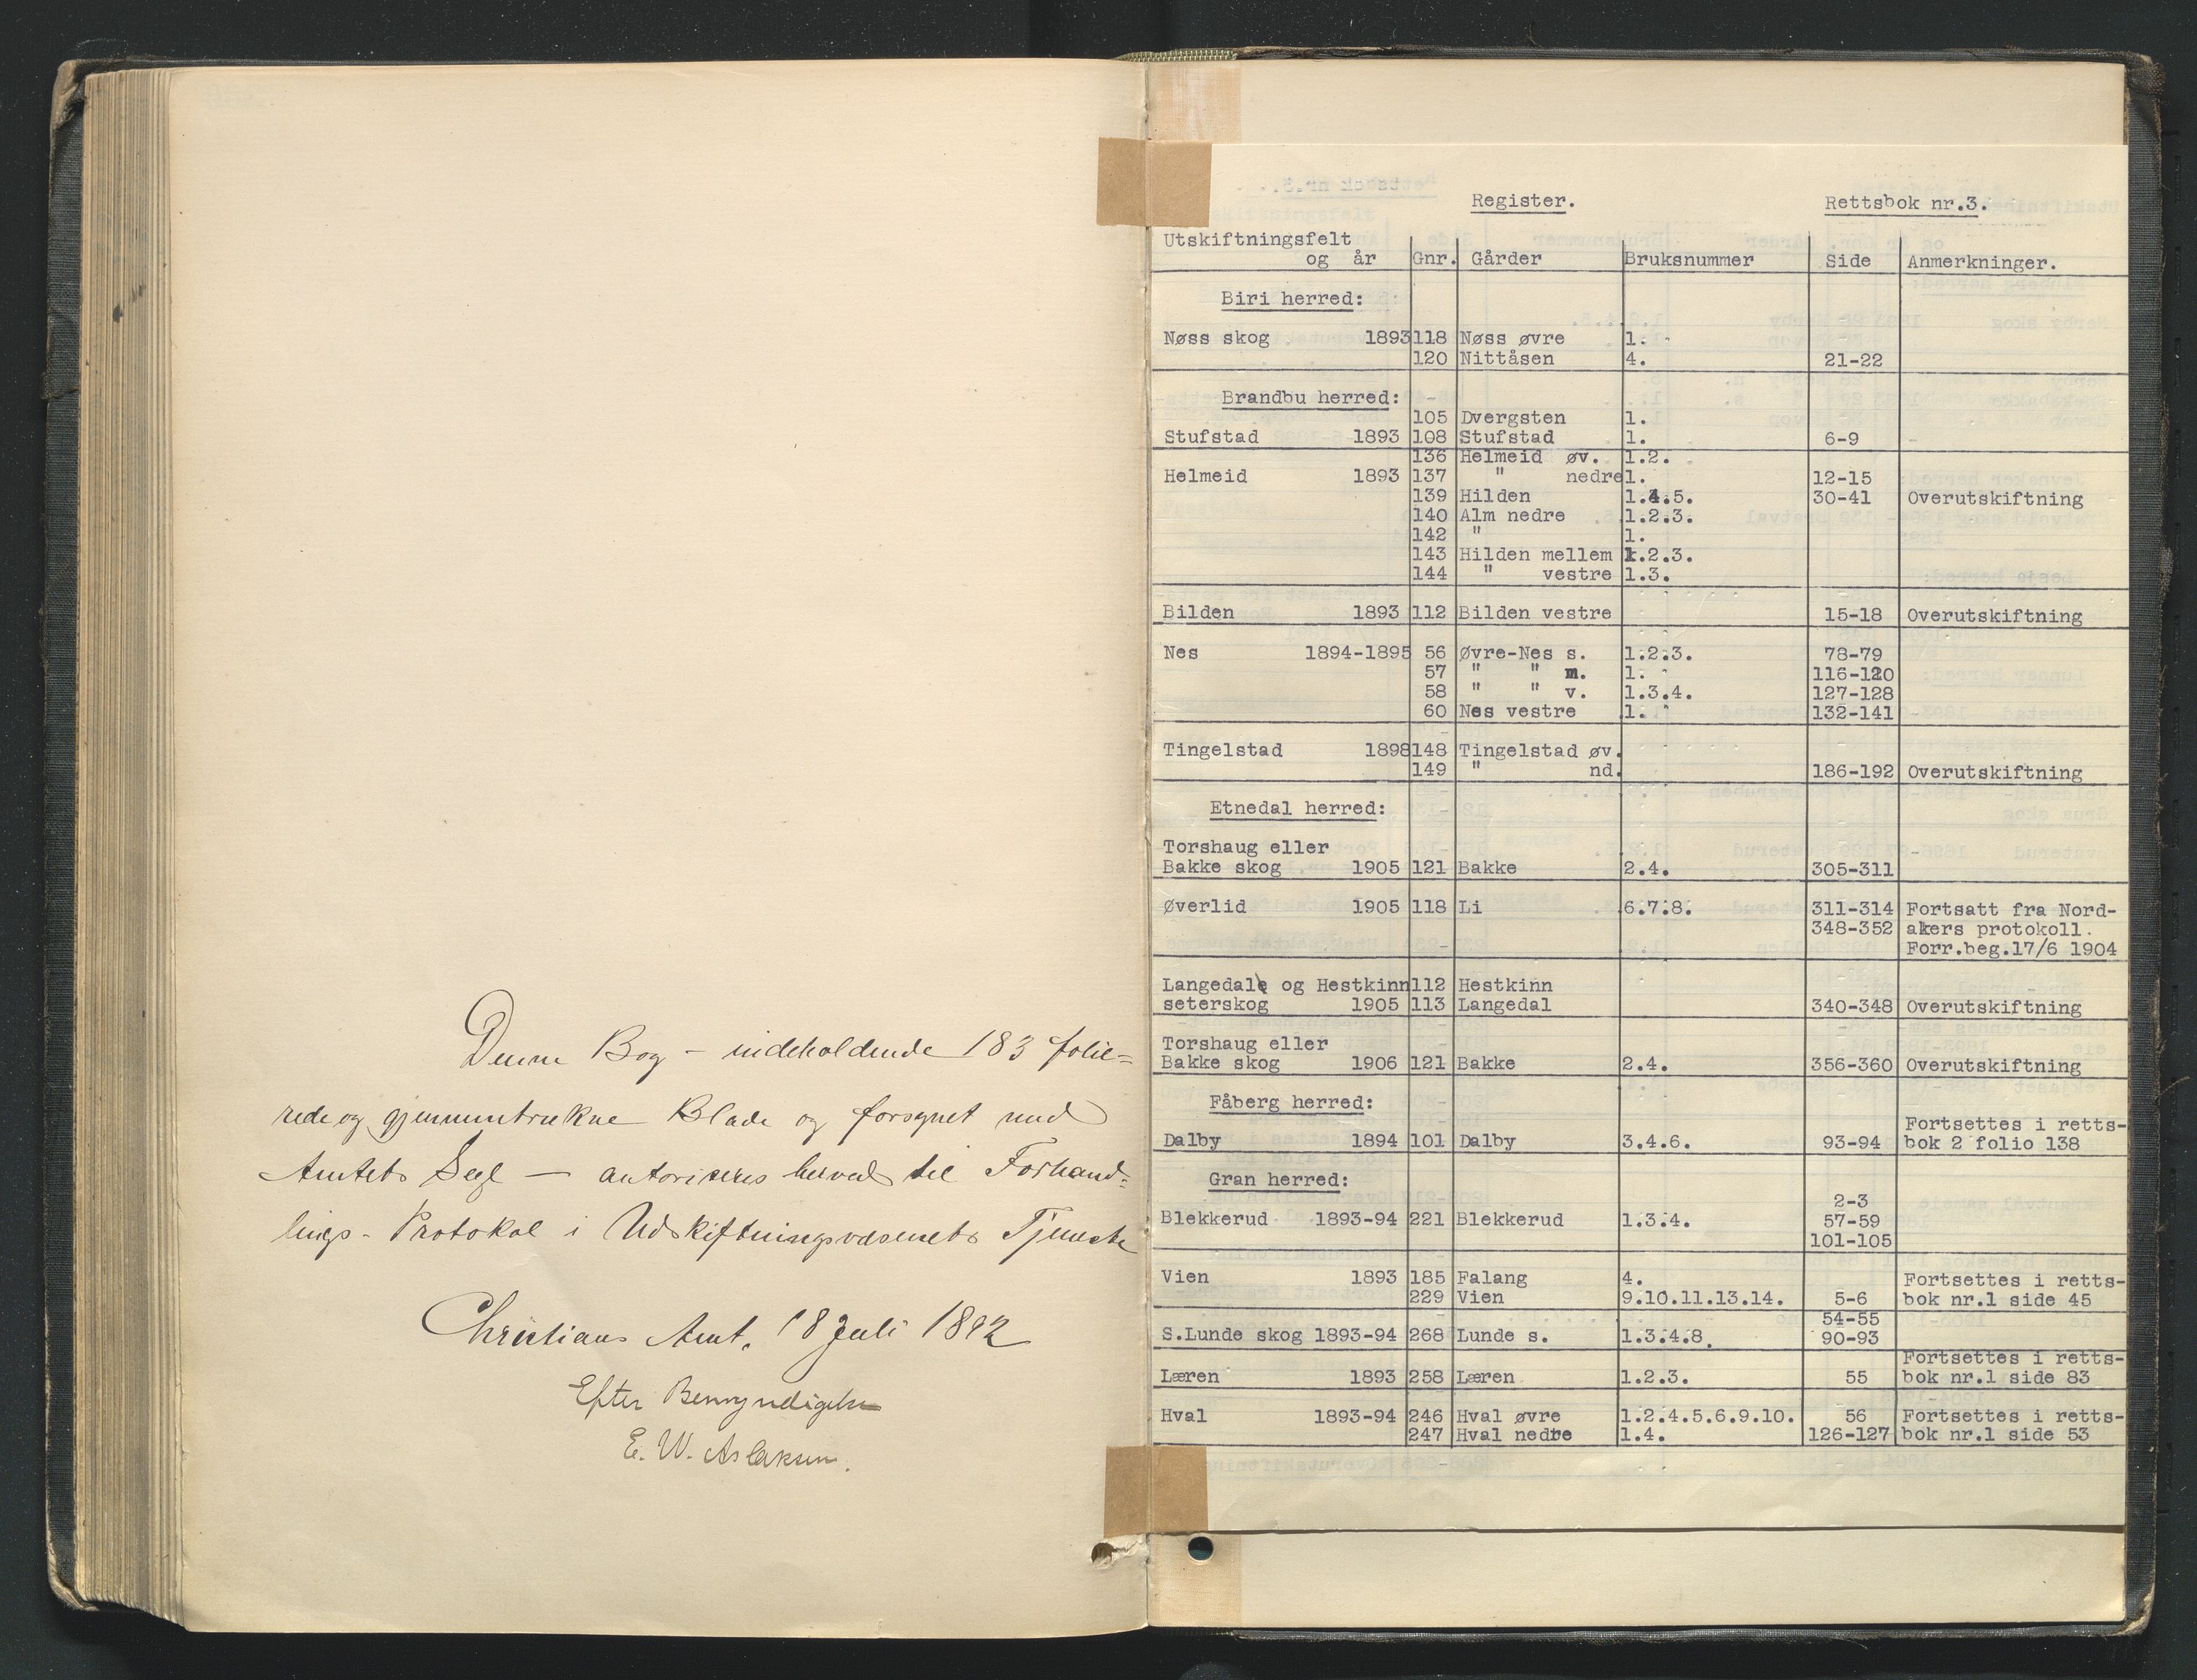 Denne Bog – indeholdende 183 folie=
rede og gjennemtrukne Blade og forsynet med
Amtets Segl — autoriseres herved til Forhand=
lings-Protokol i Udskiftningsvæsenets Tjeneste
Christians Amt, 18 Juli 1892
Efter Bemyndigelse
E. W. Aslaksen.
Register. Rettsbok nr.3.
Utskiftningsfelt
og år Gnr. Gårder Bruksnummer Side Anmerkninger.
Biri herred:
Nøss skog 1893 118 Nøss øvre 1.
120 Nittåsen 4. 21-22
Brandbu herred:
105 Dvergsten 1.
Stufstad 1893 108 Stufstad 1. 6-9
136 Helmeid øv. 1.2.
Helmeid 1893 137 " nedre 1. 12-15
139 Hilden 1.4.5. 30-41 Overutskiftning
140 Alm nedre 1.2.3.
142 " 1.
143 Hilden mellem 1.2.3.
144 " vestre 1.3.
Bilden 1893 112 Bilden vestre 15-18 Overutskiftning
Nes 1894-1895 56 Øvre-Nes s. 1.2.3. 78-79
57 " " m. 1. 116-120
58 " " v. 1.3.4. 127-128
60 Nes vestre 1. 132-141
Tingelstad 1898 148 Tingelstad øv.
149 " nd. 186-192 Overutskiftning
Etnedal herred:
Torshaug eller
Bakke skog 1905 121 Bakke 2.4. 305-311
Øverlid 1905 118 Li 6.7.8. 311-314 Fortsatt fra Nord-
348-352 akers protokoll.
Forr.beg.17/6 1904
Langedal og Hestkinn 112 Hestkinn
seterskog 1905 113 Langedal 340-348 Overutskiftning
Torshaug eller
Bakke skog 1906 121 Bakke 2.4. 356-360 Overutskiftning
Fåberg herred:
Fortsettes i retts-
Dalby 1894 101 Dalby 3.4.6. 93-94 bok 2 folio 138
Gran herred:
2-3
Blekkerud 1893-94 221 Blekkerud 1.3.4. 57-59
101-105
Vien 1893 185 Falang 4. Fortsettes i retts-
229 Vien 9.10.11.13.14. 5-6 bok nr.1 side 45
54-55
S.Lunde skog 1893-94 268 Lunde s. 1.3.4.8. 90-93
Fortsettes i retts-
Læren 1893 258 Læren 1.2.3. 55 bok nr.1 side 83
Hval 1893-94 246 Hval øvre 1.2.4.5.6.9.10. 56 Fortsettes i retts-
247 Hval nedre 1.4. 126-127 bok nr.1 side 53